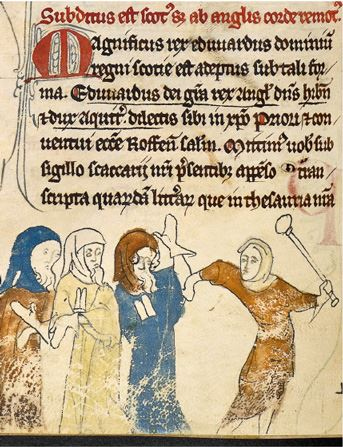 Subditus est scot's si ab anglis corde remot'.
Magnificus rex edwardus dominium
regni scotie est adeptus sub tali for
ma. Edwardus dei gra rex Angl' dns hibn'
& dux aquit' dilectis sibi in xpo Priori & con
ventui ecce Roffen salm. Mittim' vob sub
sigillo scaccarii nri psentib; appeso tran
scripta quarda litterar que in thesauria nra